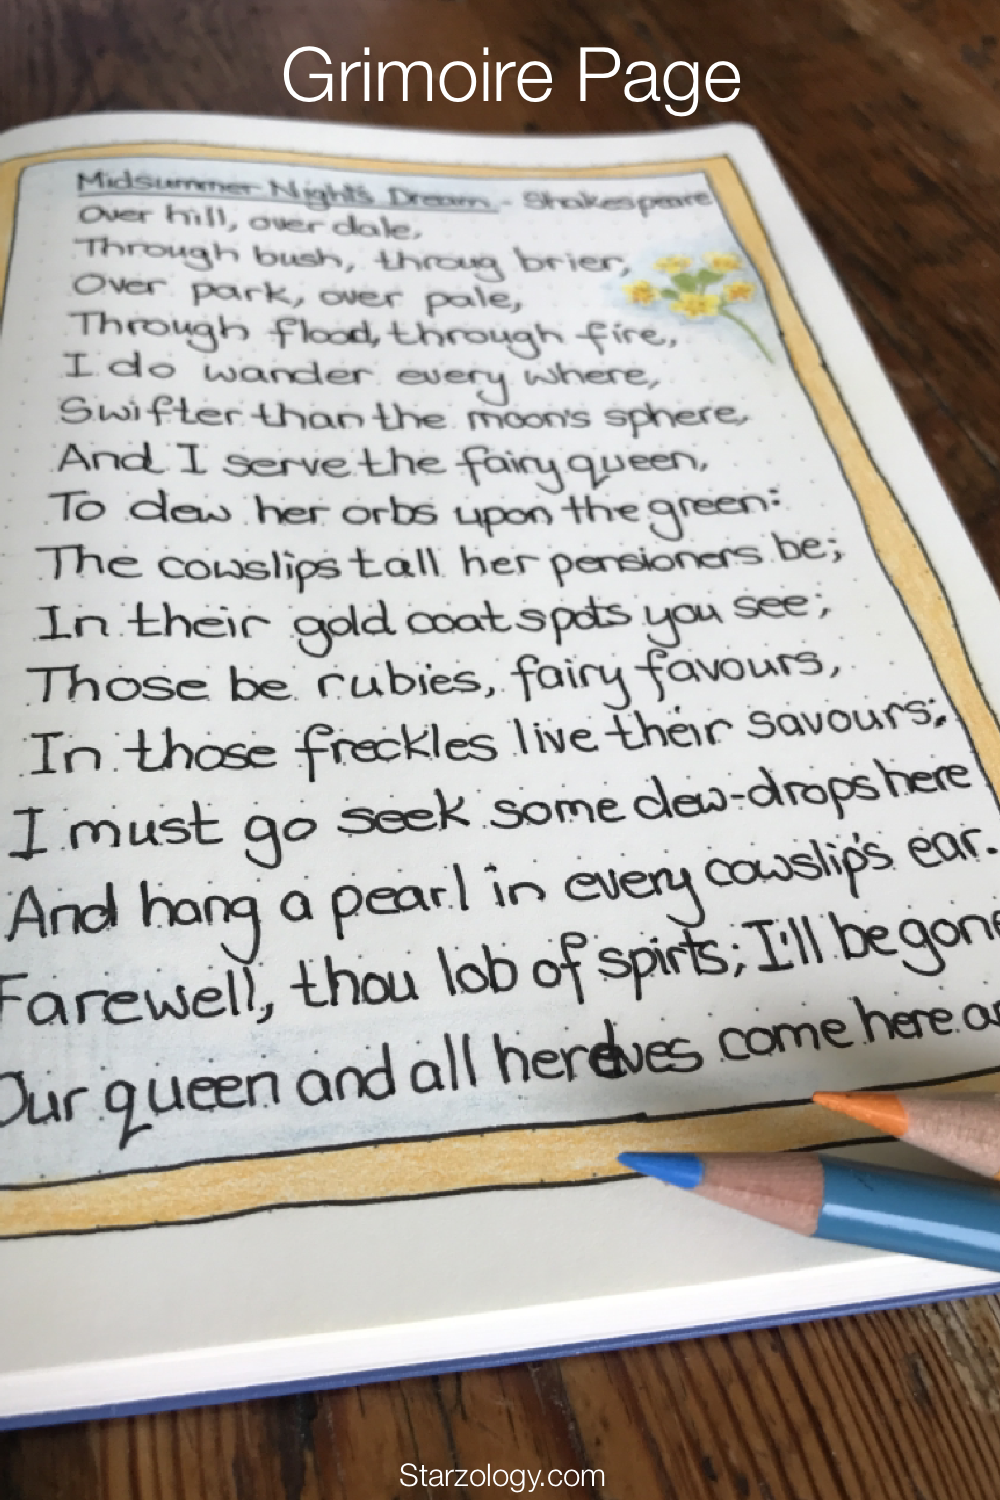 Grimoire Page
Midsummer Night's Dream - Shakespeare
Over hill, over dale,
Through bush, throug brier,
Over park, over pale,
Through flood, through fire,
I do wander every where,
Swifter than the moon's sphere,
And I serve the fairy queen,
To dew her orbs upon the green:
The cowslips tall her pensioners be;
In their gold coat spots you see;
Those be rubies, fairy favours,
In those freckles live their savours;
I must go seek some dew-drops here
And hang a pearl in every cowslip's ear.
Farewell, thou lob of spirts; I'll be gone
Our queen and all her elves come here
Starzology.com